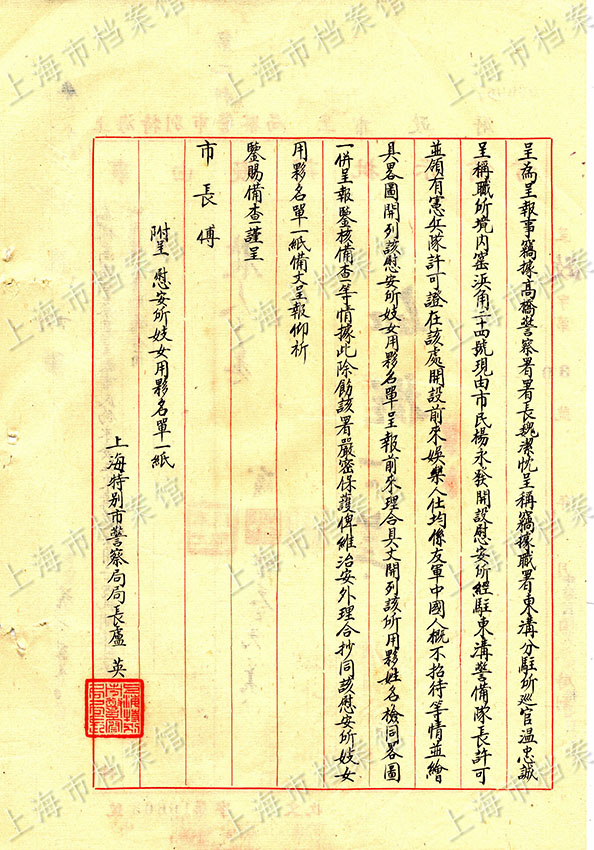 呈為呈報事竊據高橋警察署署長魏潔忱呈稱竊據職署東溝分駐所巡官温忠誠
呈稱職所境内窰浜角二十四號現由市民楊永發開設慰安所經駐東溝警備隊長許可
並領有憲兵隊許可證在該處開設前來娛樂人仕均係友軍中國人概不招待等情並繪
具畧圖開列該慰安所妓女用夥名單呈報前來理合具文開列該所用夥姓名檢同畧圖
一併呈報鑒核備查等情據此除飭該署嚴密保護俾維治安外理合抄同該慰安所妓女
用夥名單一紙備文呈報仰祈
鑒賜備查謹呈
市長傅
附呈 慰安所妓女用夥名單一紙
上海特别市警察局局長盧 英
上海市档案馆